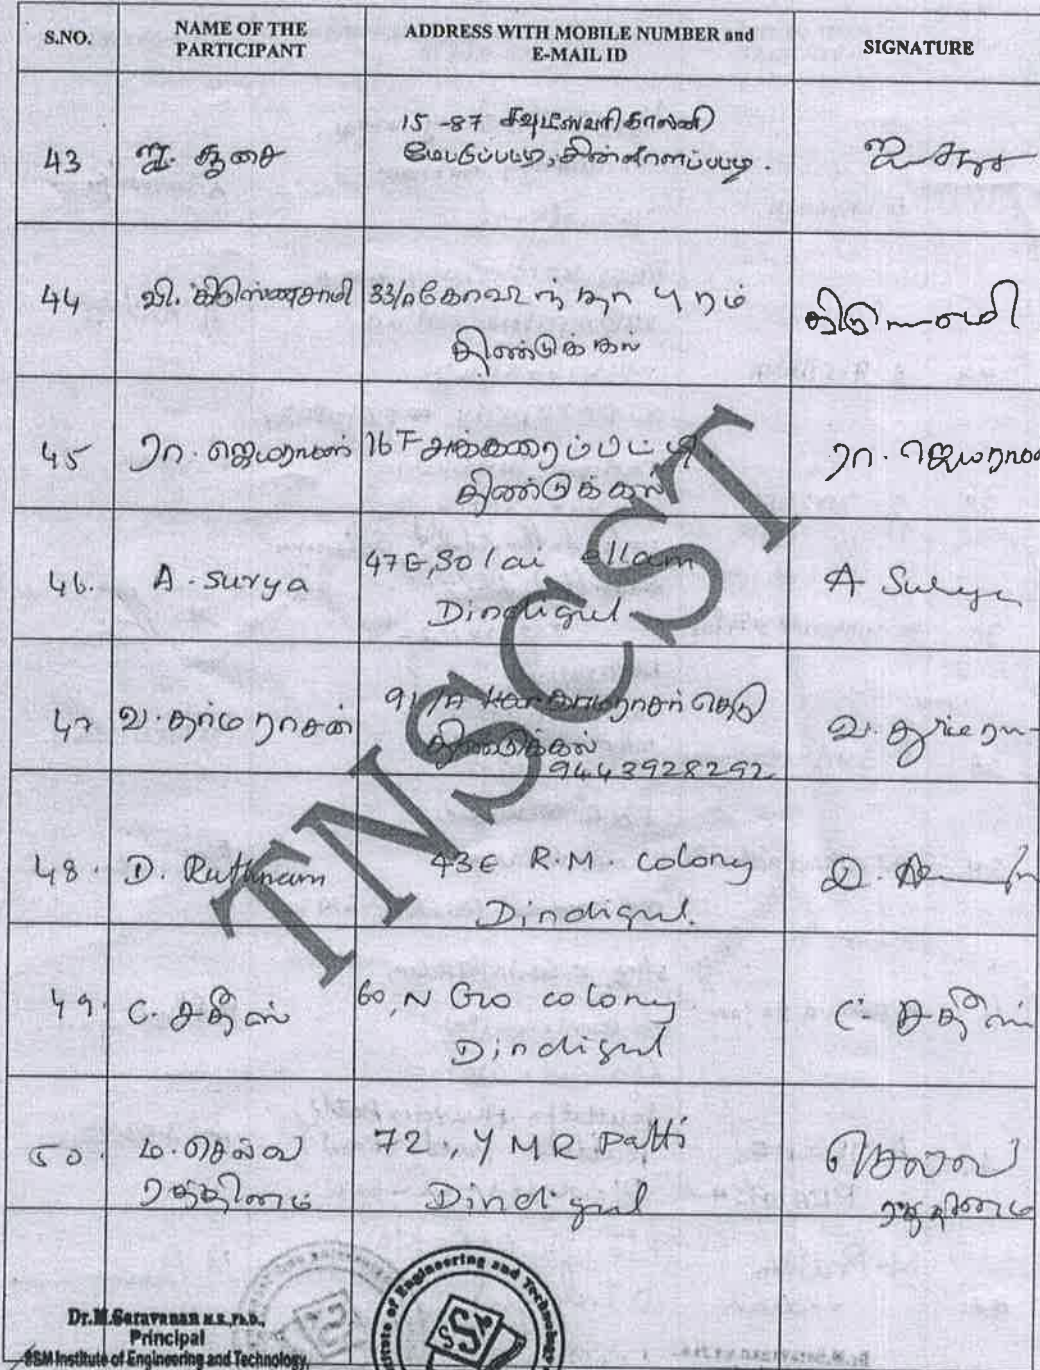 S.NO. NAME OF THE PARTICIPANT ADDRESS WITH MOBILE NUMBER and E-MAIL ID SIGNATURE
43 ஜ. சூசை 15-87
மேட்டுப்பட்டி,
44 வி. கிருஸ்ணசாமி 33/A கோவிந்தா புரம்
திண்டுக்கல்
45 ரா. ஜெயராமன் 16 F அக்கரைப்பட்டி
திண்டுக்கல்
46. A. Surya 47E, Solai Illam A Surya
Dindigul.
47 வ. தர்மராசன் 91/A காமராசர் தெரு
திண்டுக்கல்
9443928292
48. D. Ruthnam 43E R.M. Colony
Dindigul.
49. C. சதீஸ் 60, N G O colony C. சதீஸ்
Dindigul
50. ம. செல்வ 72, Y M R Patti செல்வ
ரத்தினம் Dindigul ரத்தினம்
TNSCST
Dr.M.Saravanan M.E.,Ph.D.,
Principal
SSM Institute of Engineering and Technology,
Institute of Engineering and Technology
SSM